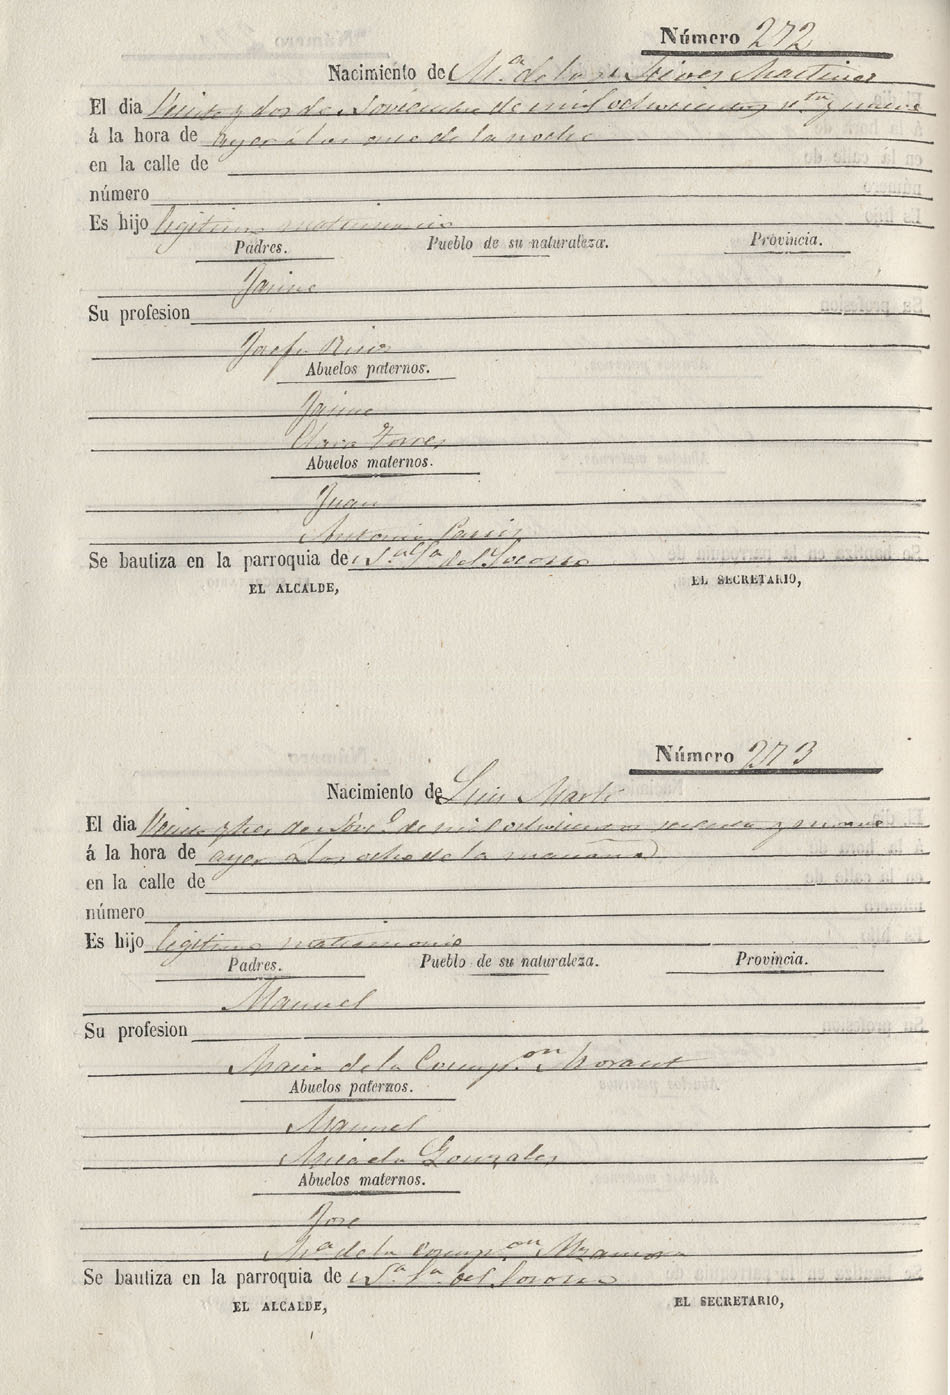 Número 272
Nacimiento de Mª de los Martinez
El dia Veinte y dos de Noviembre de mil ochocientos stª y nueve
á la hora de ayer á las once de la noche
en la calle de
número
Es hijo legitimo matrimonio
Padres. Pueblo de su naturaleza. Provincia.
Jaime
Su profesion
Josefa
Abuelos paternos.
Jaime
Clara Torres
Abuelos maternos.
Juan
Antonia
Se bautiza en la parroquia de Sª del Socorro
EL ALCALDE, EL SECRETARIO,
Número 273
Nacimiento de Luis Marti
El dia Veinte y tres de Novº de mil ochocientos sesenta y nueve
á la hora de ayer á las ocho de la mañana
en la calle de
número
Es hijo legitimo matrimonio
Padres. Pueblo de su naturaleza. Provincia.
Manuel
Su profesion
Maria de la Concepon Morant
Abuelos paternos.
Manuel
Micaela Gonzales
Abuelos maternos.
Jose
Mª de la Concepon
Se bautiza en la parroquia de Sª del Socorro
EL ALCALDE, EL SECRETARIO,